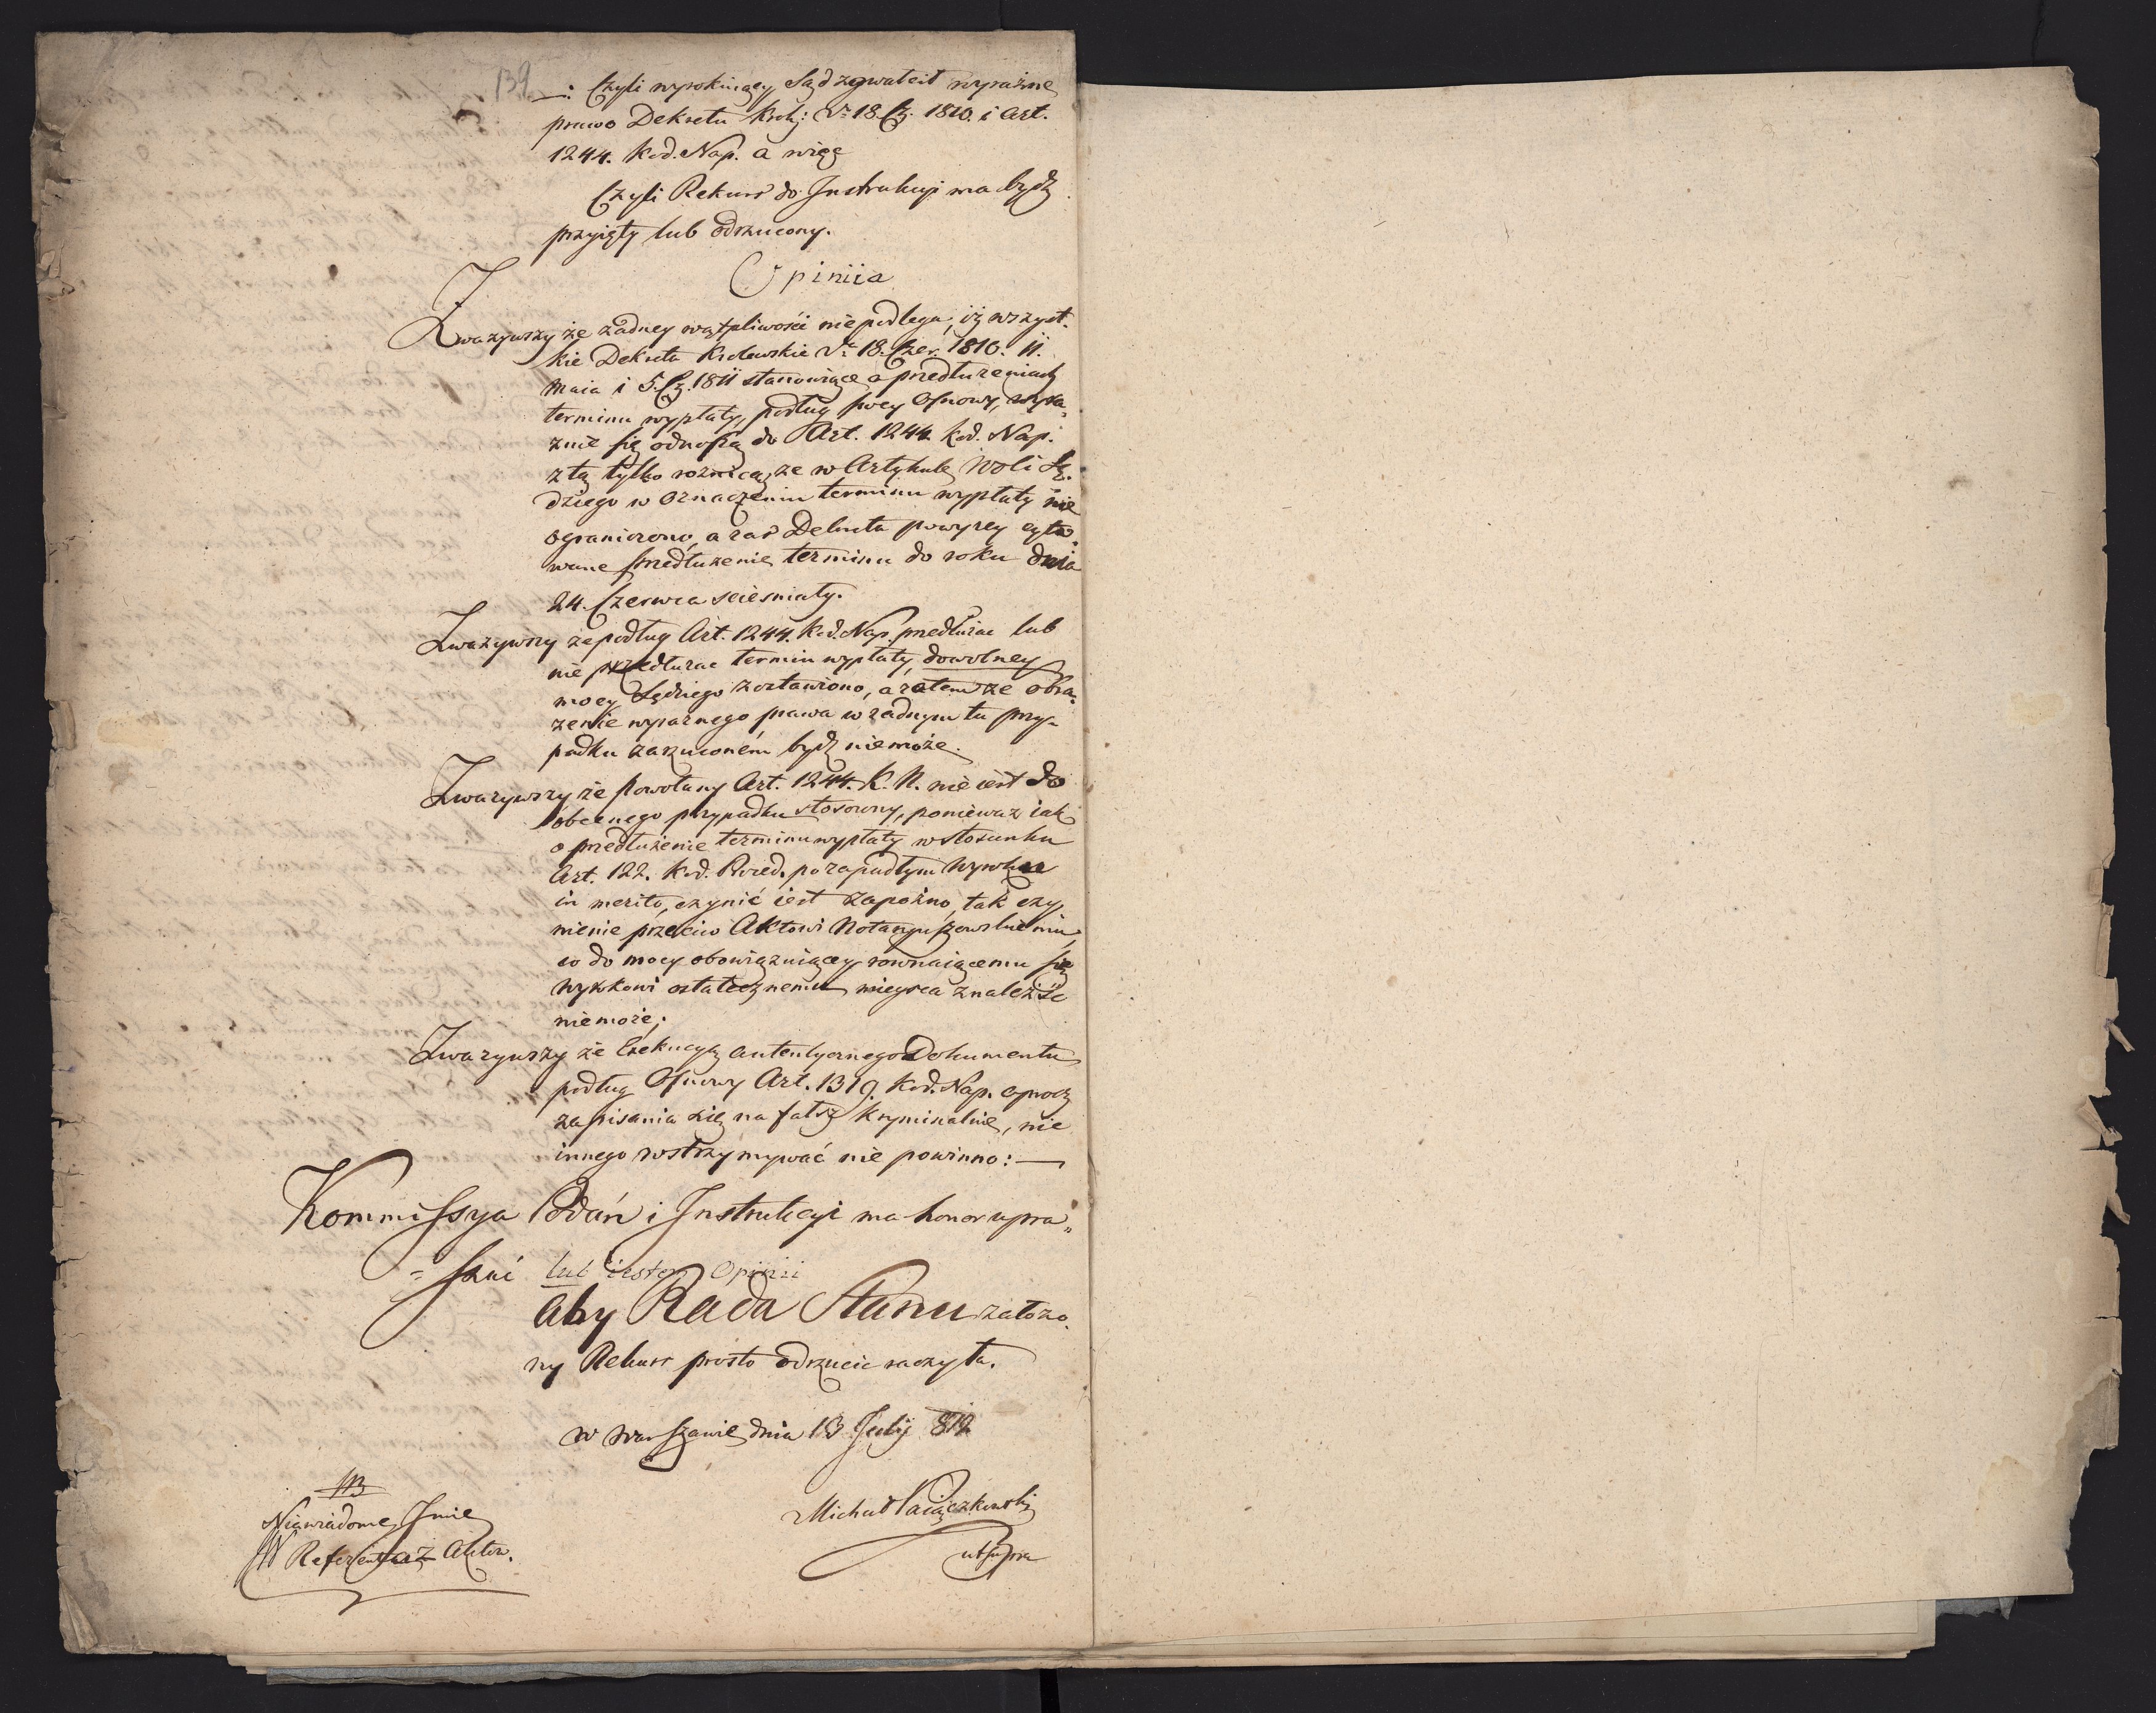 139
—: Czyli wyrokuiący Sąd zgwałcił wyraźne
prawo Dekretu Krolj: Dn 18. Cz. 1810. i Art.
1244. Kod. Nap. a więc
Czyli Rekurs do Instrukcyi ma bydź
przyięty lub odrzucony.
Opiniia
Zważywszy że żadney wątpliwości niepodlega, iż wszyst-
kie Dekreta Krolewskie Dn 18. Czer. 1810. 11.
Maia i 5. Cz. 1811 stanowiące o przedłużeniach
terminu wypłaty, podług swey Osnowy, wyra-
znie się odnoszą do Art. 1244. Kod. Nap.
z tą tylko roznicą, ze w Artykule woli Sę-
dziego w oznaczeniu terminu wypłaty nie
ograniczono, a zaś Dekreta powyzey cyto-
wane przedłużenie terminu do roku dnia
24. Czerwca scieśniały.
Zważywszy że podług Art. 1244. Kod. Nap. przedłużac lub
nie przedłuzac termin wypłaty, dowolney
mocy Sędziego zostawiono, a zatem że obra-
zenie wyraznego prawa w żadnym tu przy-
padku zarzuconém bydź niemoże.
Zwazywszy że powołany Art. 1244. K. N. nie iest do
obecnego przypadku stosowny, ponieważ iak
o przedłużenie terminu wypłaty w stosunku
Art. 122. Kod. Proced. po zapadłym wyroku
in merito, czynić iest zapożno, tak czy
nienie przeciw Aktowi Notaryuszowskiemu,
co do mocy obowiązuiącey rownaiącemu się
wyrokowi ostatecznemu mieysca znaleźść
niemoże;
Zwazywszy że Exekucyą autentycznego Dokumentu
podług Osnowy Art. 1319. Kod. Nap. oprocz
zapisania się na fałsz kryminalnie, nic
innego wstrzymywać nie powinno: —
Kommissya Podań i Instrukcyi ma honor upra-
= szać lub iestem Opinii
aby Rada Stanu założo-
ny Rekurs prosto odrzucic raczyła.
w Warszawie dnia 13 Julij 812
NB
Niewiadome Imie
Referenta z Aktow.
Michał
utsupra